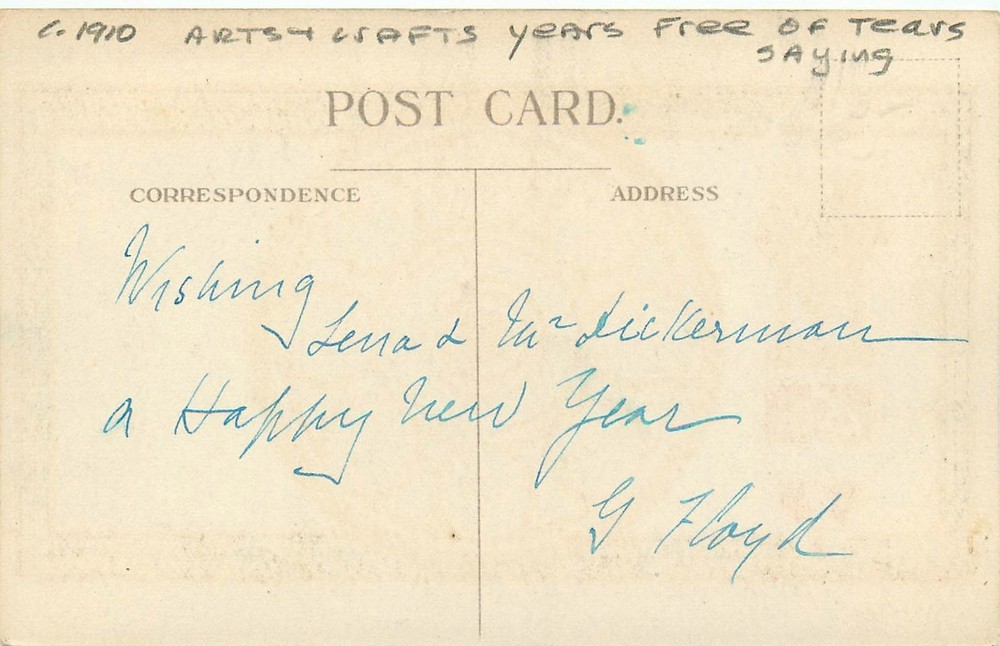 c. 1910 ARTS + CRAFTS years Free OF Tears
SAying
POST CARD.
CORRESPONDENCE
ADDRESS
Wishing
Lena & Mr Dickerman
a Happy New Year
G Floyd